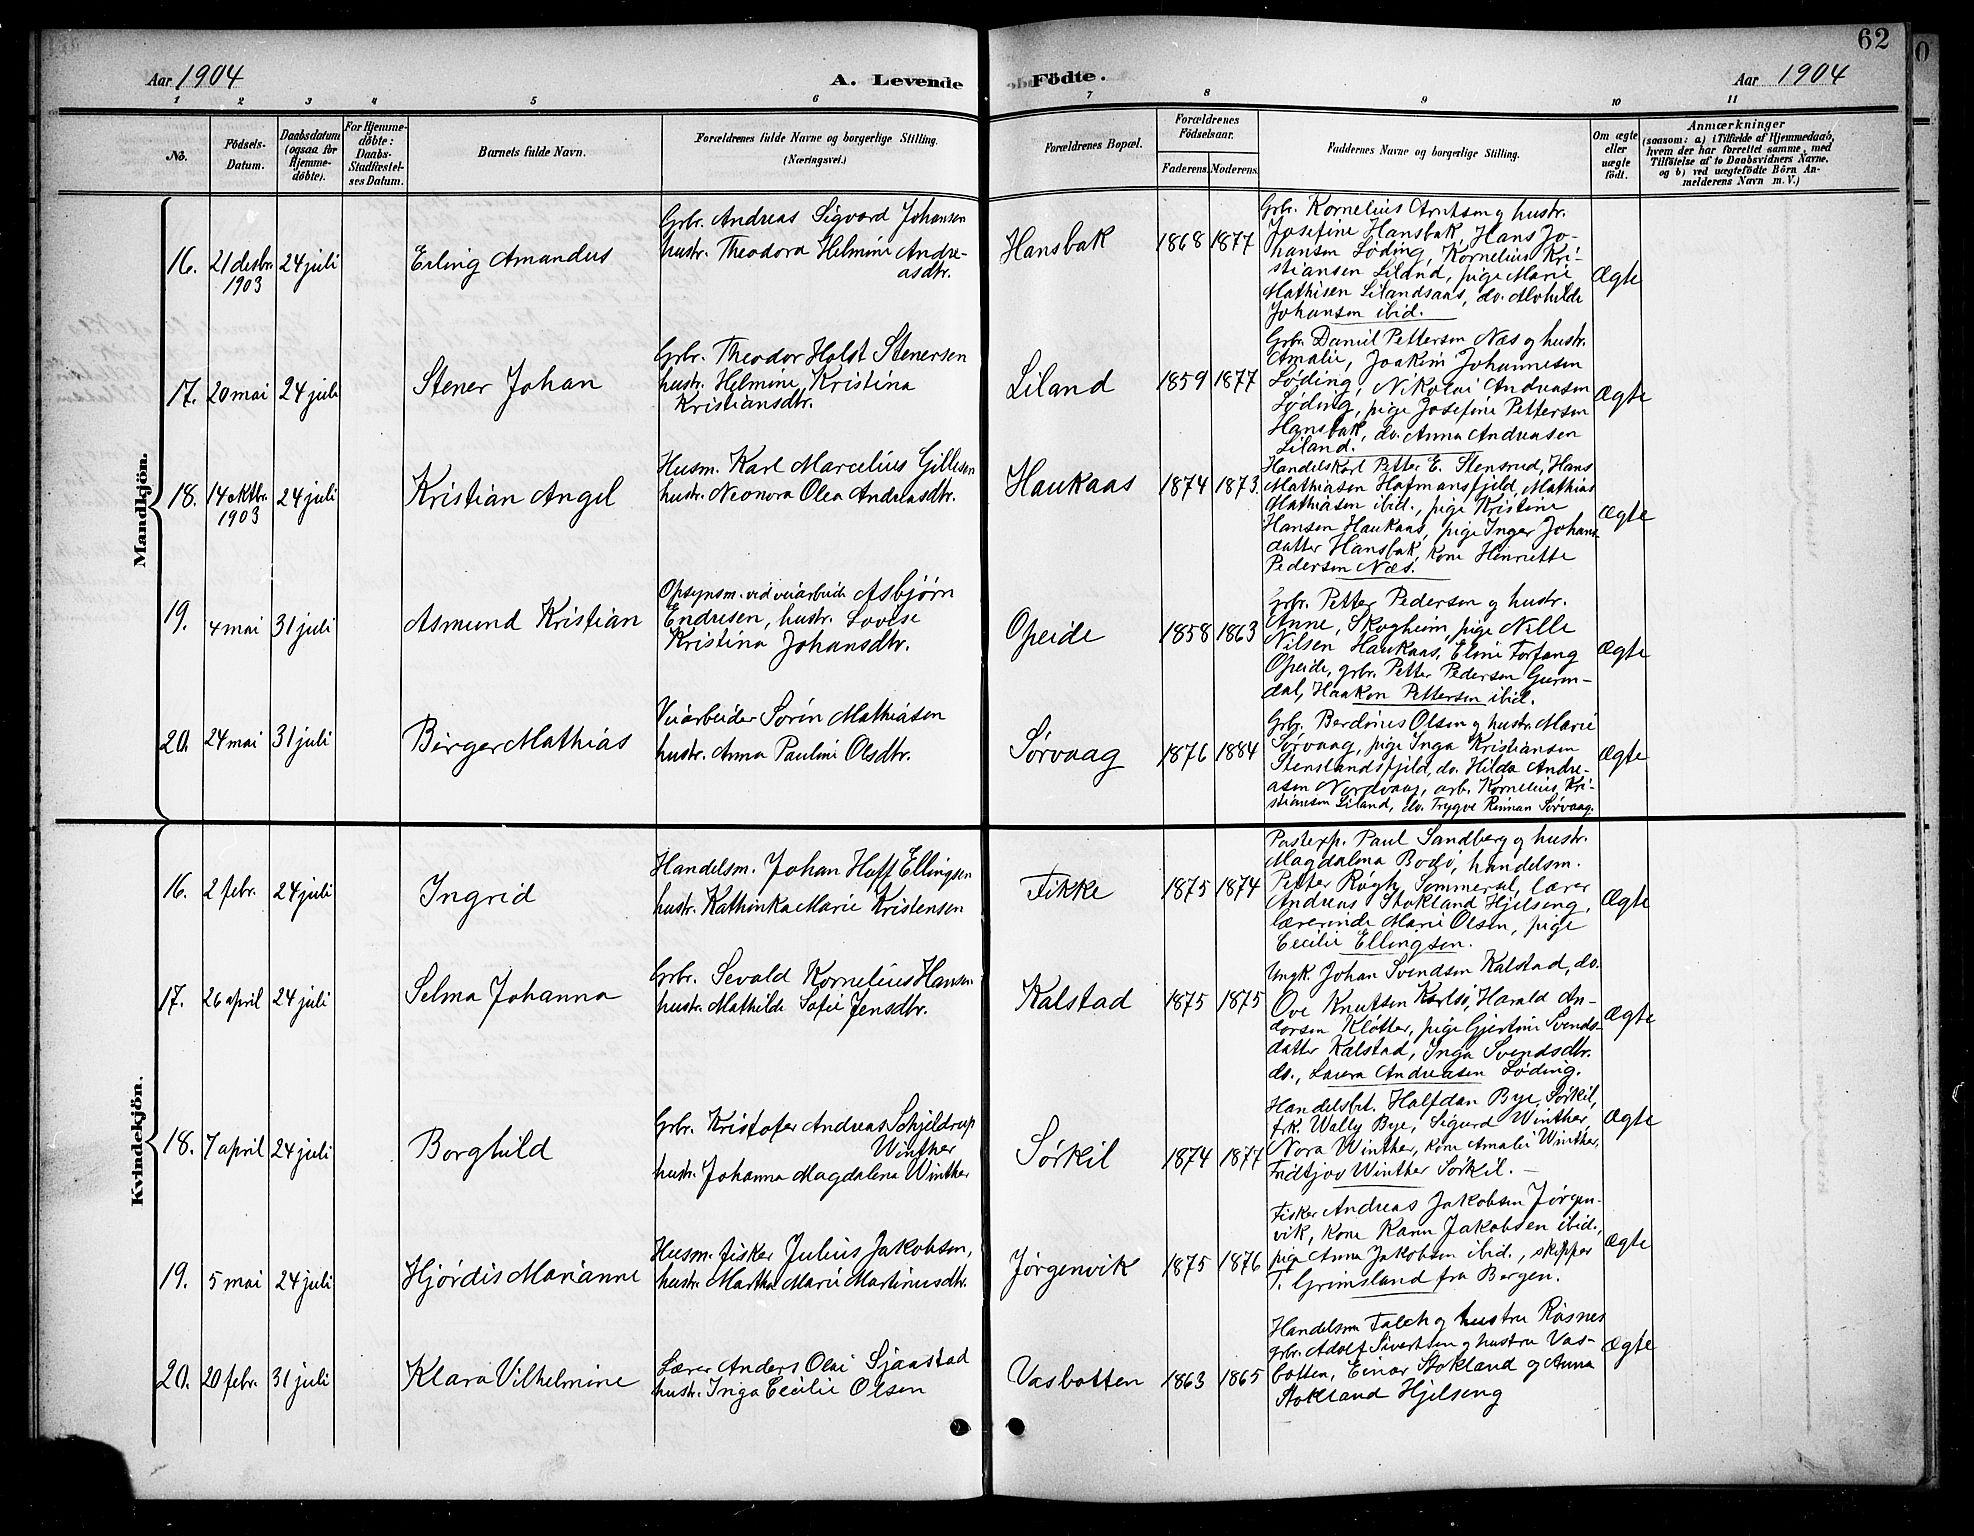 62
Aar 1904
A. Levende
Födte.
Aar 1904
1 2 3 4 5 6 7 8 9 10 11
No.
Födsels-
Datum.
Daabsdatum
(ogsaa for
Hjemme-
döbte).
For Hjemme-
döbte:
Daabs-
Stadfæstel-
ses Datum.
Barnets fulde Navn.
Forældrenes fulde Navne og borgerlige Stilling.
(Næringsvei.)
Forældrenes Bopæl.
Forældrenes
Födselsaar.
Faderens. Moderens.
Faddernes Navne og borgerlige Stilling.
Om ægte
eller
uægte
födt.
Anmærkninger
(saasom: a) i Tilfælde af Hjemmedaab,
hvem der har forrettet samme, med
Tilföielse af to Daabsvidners Navne.
og b) ved uægtefödte Börn An-
melderens Navn m. V.)
Mandkjön.
16. 21 desbr. 1903 24 juli
Erling Amandus
Grb. Andreas Sigvard Johansen
hustr. Theodora Helmine Andre-
asdtr.
Hansbak 1868 1877
Grb. Kornelius Arntsen og hustr.
Josefine Hansbak, Hans Jo-
hansen Løding, Kornelius Kri-
stiansen Liland, pige Marie
Mathisen Lilandsaas, do. Alvhilde
Johansen ibid.
Ægte
17. 20 mai 24 juli
Stener Johan
Grb. Theodor Holst Stenersen
hustr. Helmine Kristina
Kristiansdtr.
Liland 1859 1877
Grb. Daniel Pettersen Næs og hustr.
Amalie, Joakim Johannesen
Løding, Nikolai Andreasen
Løding, pige Josefine Pettersen
Hansbak, do. Anna Andreasen
Liland.
Ægte
18. 14 oktbr. 1903 24 juli
Kristian Angel
Husm. Karl Marcelius Gillesen
hustr. Neonora Olea Andreasdtr.
Haukaas 1874 1873.
Handelskarl Petter E. Stensrud, Hans
Mathiasen Hofmansfjeld, Mathias
Mathiasen ibid., pige Kristine
Hansen Haukaas, pige Inger Johans
datter Hansbak, kone Henriette
Pedersen Næs.
Ægte
19. 4 mai 31 juli
Asmund Kristian
Opsynsm. ved veiarbeide Asbjørn
Endresen, hustr. Lovise
Kristina Johansdtr.
Opeide 1858 1863
Grb. Petter Pedersen og hustr.
Anne, Skogheim, pige Nille
Nilsen Haukaas, Eline Forfang
Opeide, grb. Petter Pedersen
dal, Haakon Pettersen ibid.
Ægte
20. 24 mai 31 juli
Birger Mathias
Veiarbeider Sørin Mathiasen
hustr. Anna Pauline Olsdtr.
Sørvaag 1876 1884
Grb. Berdines Olsen og hustr. Marie
Sørvaag, pige Inga Kristiansen
Stenslandsfjeld, do. Hilda Andre-
asen Nordvaag, arb. Kornelius Kri-
stiansen Liland, do. Trygve Rinnan Sørvaag.
Ægte
Kvindekjön.
16. 2 febr. 24 juli
Ingrid
Handelsm. Johan Hoff Ellingsen
hustr. Kathinka Marie Kristensen
Fikke 1875 1874
Postexp. Paul Sandberg og hustr.
Magdalena Bodø, handelsm.
Petter Røgh, Sommersel, lærer
Andreas Stokland Hjelseng,
lærerinde Marie Olsen, pige
Cecilie Ellingsen.
Ægte
17. 26 april 24 juli
Selma Johanna
Grb. Sevald Kornelius Hansen
hustr. Mathilde Sofie Jensdtr.
Kalstad 1875 1875
Ungk. Johan Svendsen Kalstad, do.
Ove Knutsen Karlsø, Harald An-
dorsen Kløtter, pige Gjertine Svends-
datter Kalstad, Inga Svendsdtr.
do., Laura Andreasen Løding.
Ægte
18. 7 april 24 juli
Borghild
Grb. Kristofer Andreas Schjeldrup
Winther
hustr. Johanna Magdalena Winther
Sørkil 1874 1877
Handelsbet. Halfdan Bye, Sørkil,
frk. Wally Bye, Sigurd Winther,
Nora Winther, kone Amalie Winther,
Fridtjov Winther Sørkil. –
Ægte
19. 5 mai 24 juli
Hjørdis Marianne
Husm. fisker Julius Jakobsen,
hustr. Martha Marie Martinusdtr.
Jørgenvik 1875 1876
Fisker Andreas Jakobsen Jørgen-
vik, kone Karen Jakobsen ibid.,
pige Anna Jakobsen ibid., skipper
T. Grimsland fra Bergen.
Ægte
20. 20 febr. 31 juli
Klara Vilhelmine
Lærer Anders Olai Sjaastad
hustr. Inga Cecilie Olsen
Vasbotten 1863 1865
Handelsm Falch og hustru Røsnes
grb. Adolf Sivertsen og hustru Vas-
botten, Einar Stokland og Anna
Stokland Hjelseng
Ægte